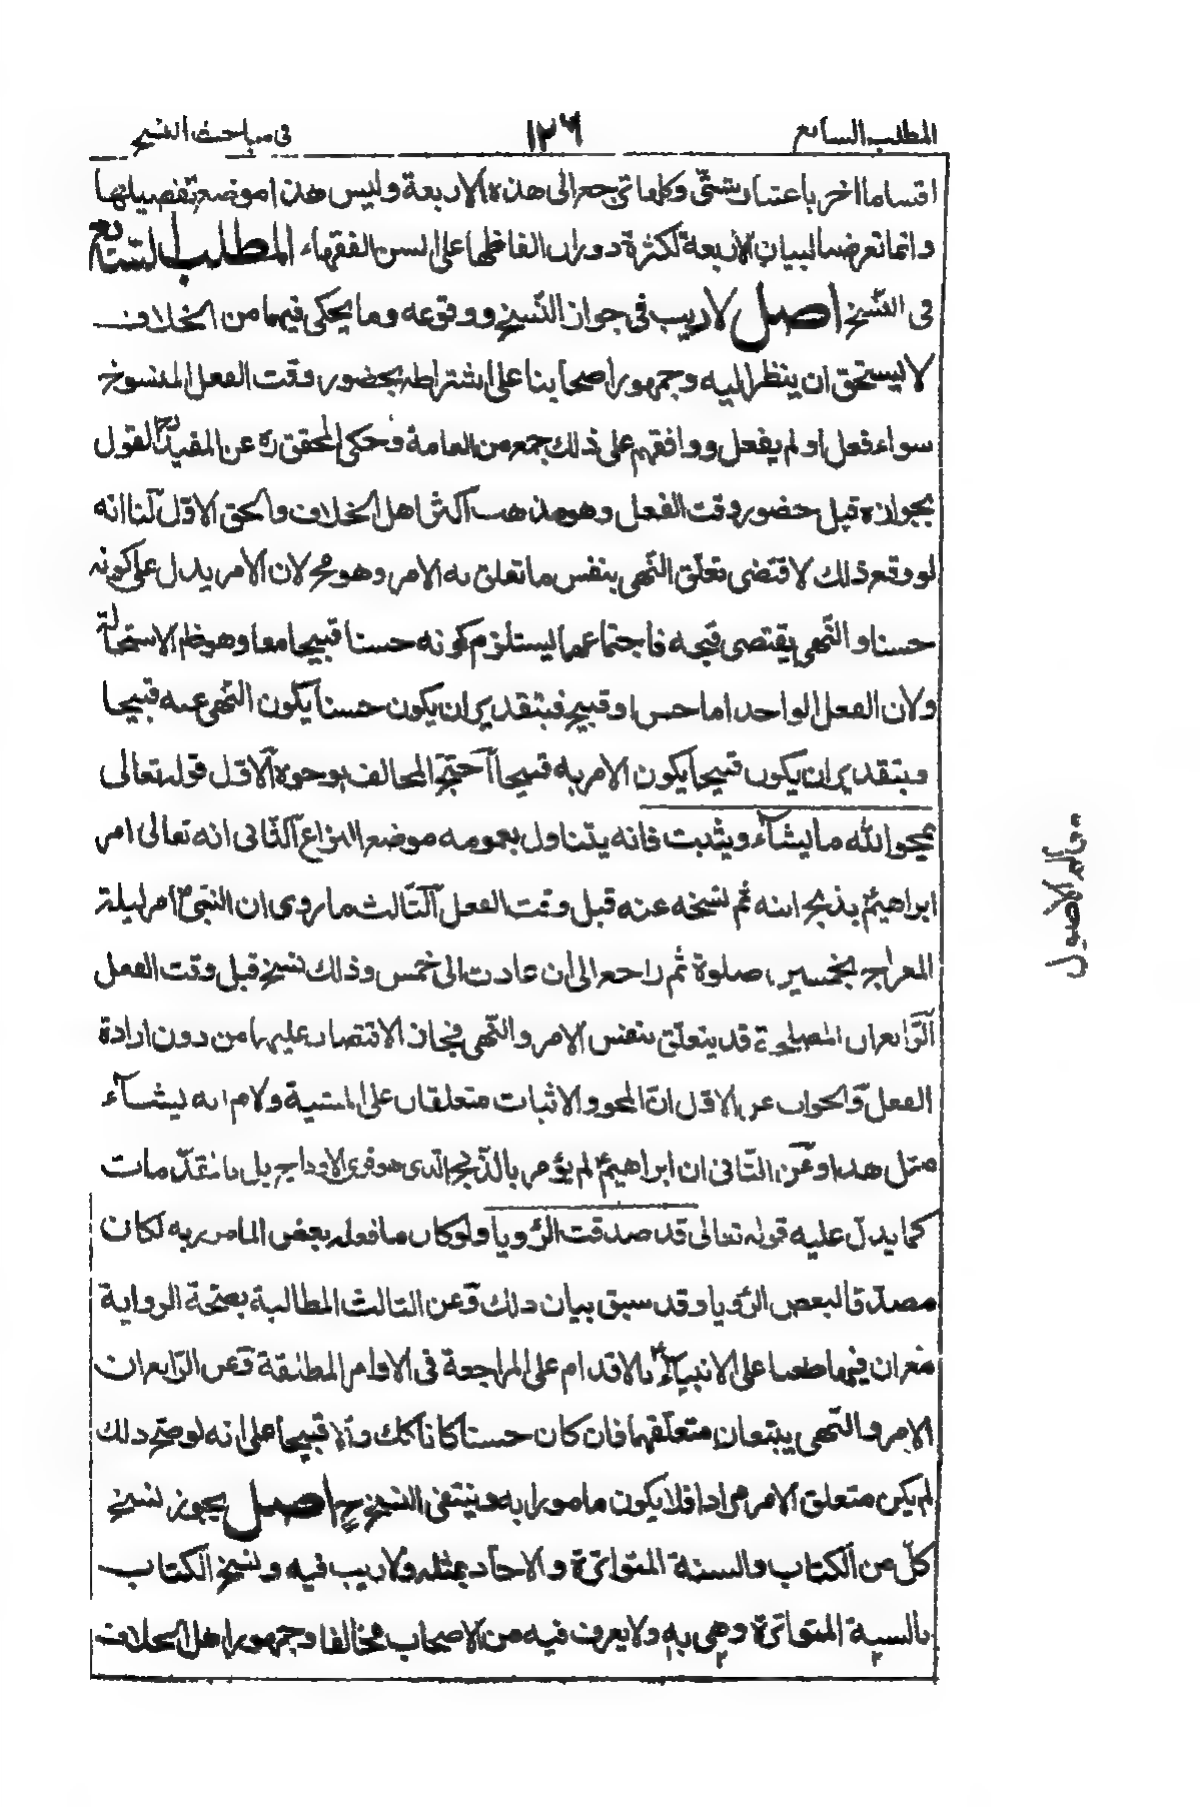 المطلب السابع
١٢٦
فى مباحث النسخ
اقساما اخر باعتبار شتّى وكلها ترجع الى هذه الاربعة وليس هذا موضع تفصيلها
وانما تعرضنا لبيان الاربعة لكثرة دوران الفاظها على السن الفقهاء المطلب السّابع
فى النّسخ اصل لا ريب فى جواز النّسخ ووقوعه وما يحكى فيهما من الخلاف
لا يستحق ان ينظر اليه وجمهور اصحابنا على اشتراطه بحضور وقت الفعل المنسوخ
سواء فعل او لم يفعل ووافقهم على ذلك جمع من العامة وحكى المحقق ره عن المفيد ره القول
بجوازه قبل حضور وقت الفعل وهو مذهب اكثر اهل الخلاف والحق الاوّل لنا انه
لو وقع ذلك لاقتضى تعلّق النّهى بنفس ما تعلق به الامر وهو مح لان الامر يدل على كونه
حسنا والنّهى يقتضى قبحه فاجتماعهما يستلزم كونه حسنا قبيحا معا وهو ظم الاستحالة
ولان الفعل الواحد اما حسن او قبيح فبتقدير ان يكون حسنا يكون النّهى عنه قبيحا
وبتقدير ان يكون قبيحا يكون الامر به قبيحا احتج المخالف بوجوه الاوّل قوله تعالى
يمحو الله ما يشآء ويثبت فانه يتناول بعمومه موضع النزاع الثّانى انه تعالى امر
ابراهيم ع بذبح ابنه ثم نسخه عنه قبل وقت الفعل الثّالث ما روى ان النبىّ ص امر ليلة
المعراج بخمسين صلوة ثم راجع الى ان عادت الى خمس وذلك نسخ قبل وقت الفعل
الرّابع ان المصلحة قد يتعلّق بنفس الامر والنّهى فجاز الاقتصار عليهما من دون ارادة
الفعل والجواب عن الاوّل انّ المحو والاثبات متعلقان على المشية ولا م انه يشآء
مثل هذا وعن الثّانى ان ابراهيم ع لم يؤمر بالذّبح الذى هو فرى الاوداج بل بالمقدّمات
كما يدل عليه قوله تعالى قد صدقت الرّؤيا ولو كان ما فعله بعض المامور به لكان
مصدّقا لبعض الرّؤيا وقد سبق بيان ذلك وعن الثالث المطالبة بصحّة الرواية
مع ان فيها طعنا على الانبيآء بالاقدام على المراجعة فى الاوامر المطلقة وعن الرّابع ان
الامر والنّهى يتبعان متعلّقهما فان كان حسنا كانا كك والا قبيحا على انه لو صح ذلك
لم يكن متعلق الامر مرادا فلا يكون مامورا به وينتفى النسخ ح اصل يجوز نسخ
كلّ من الكتاب والسنة المتواترة والاحاد بمثله ولا ريب فيه ونسخ الكتاب
بالسنة المتواترة وهى به ولا يعرف فيه من الاصحاب مخالفا وجمهور اهل الخلاف
معالم الاصول